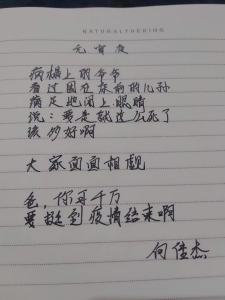 NATURALTHERING
元宵夜
病榻上的爷爷
看过围在床前的儿孙
满足地闭上眼睛
说:要是就这么死了
该多好啊
大家面面相觑
爸,你可千万
要挺到疫情结束啊